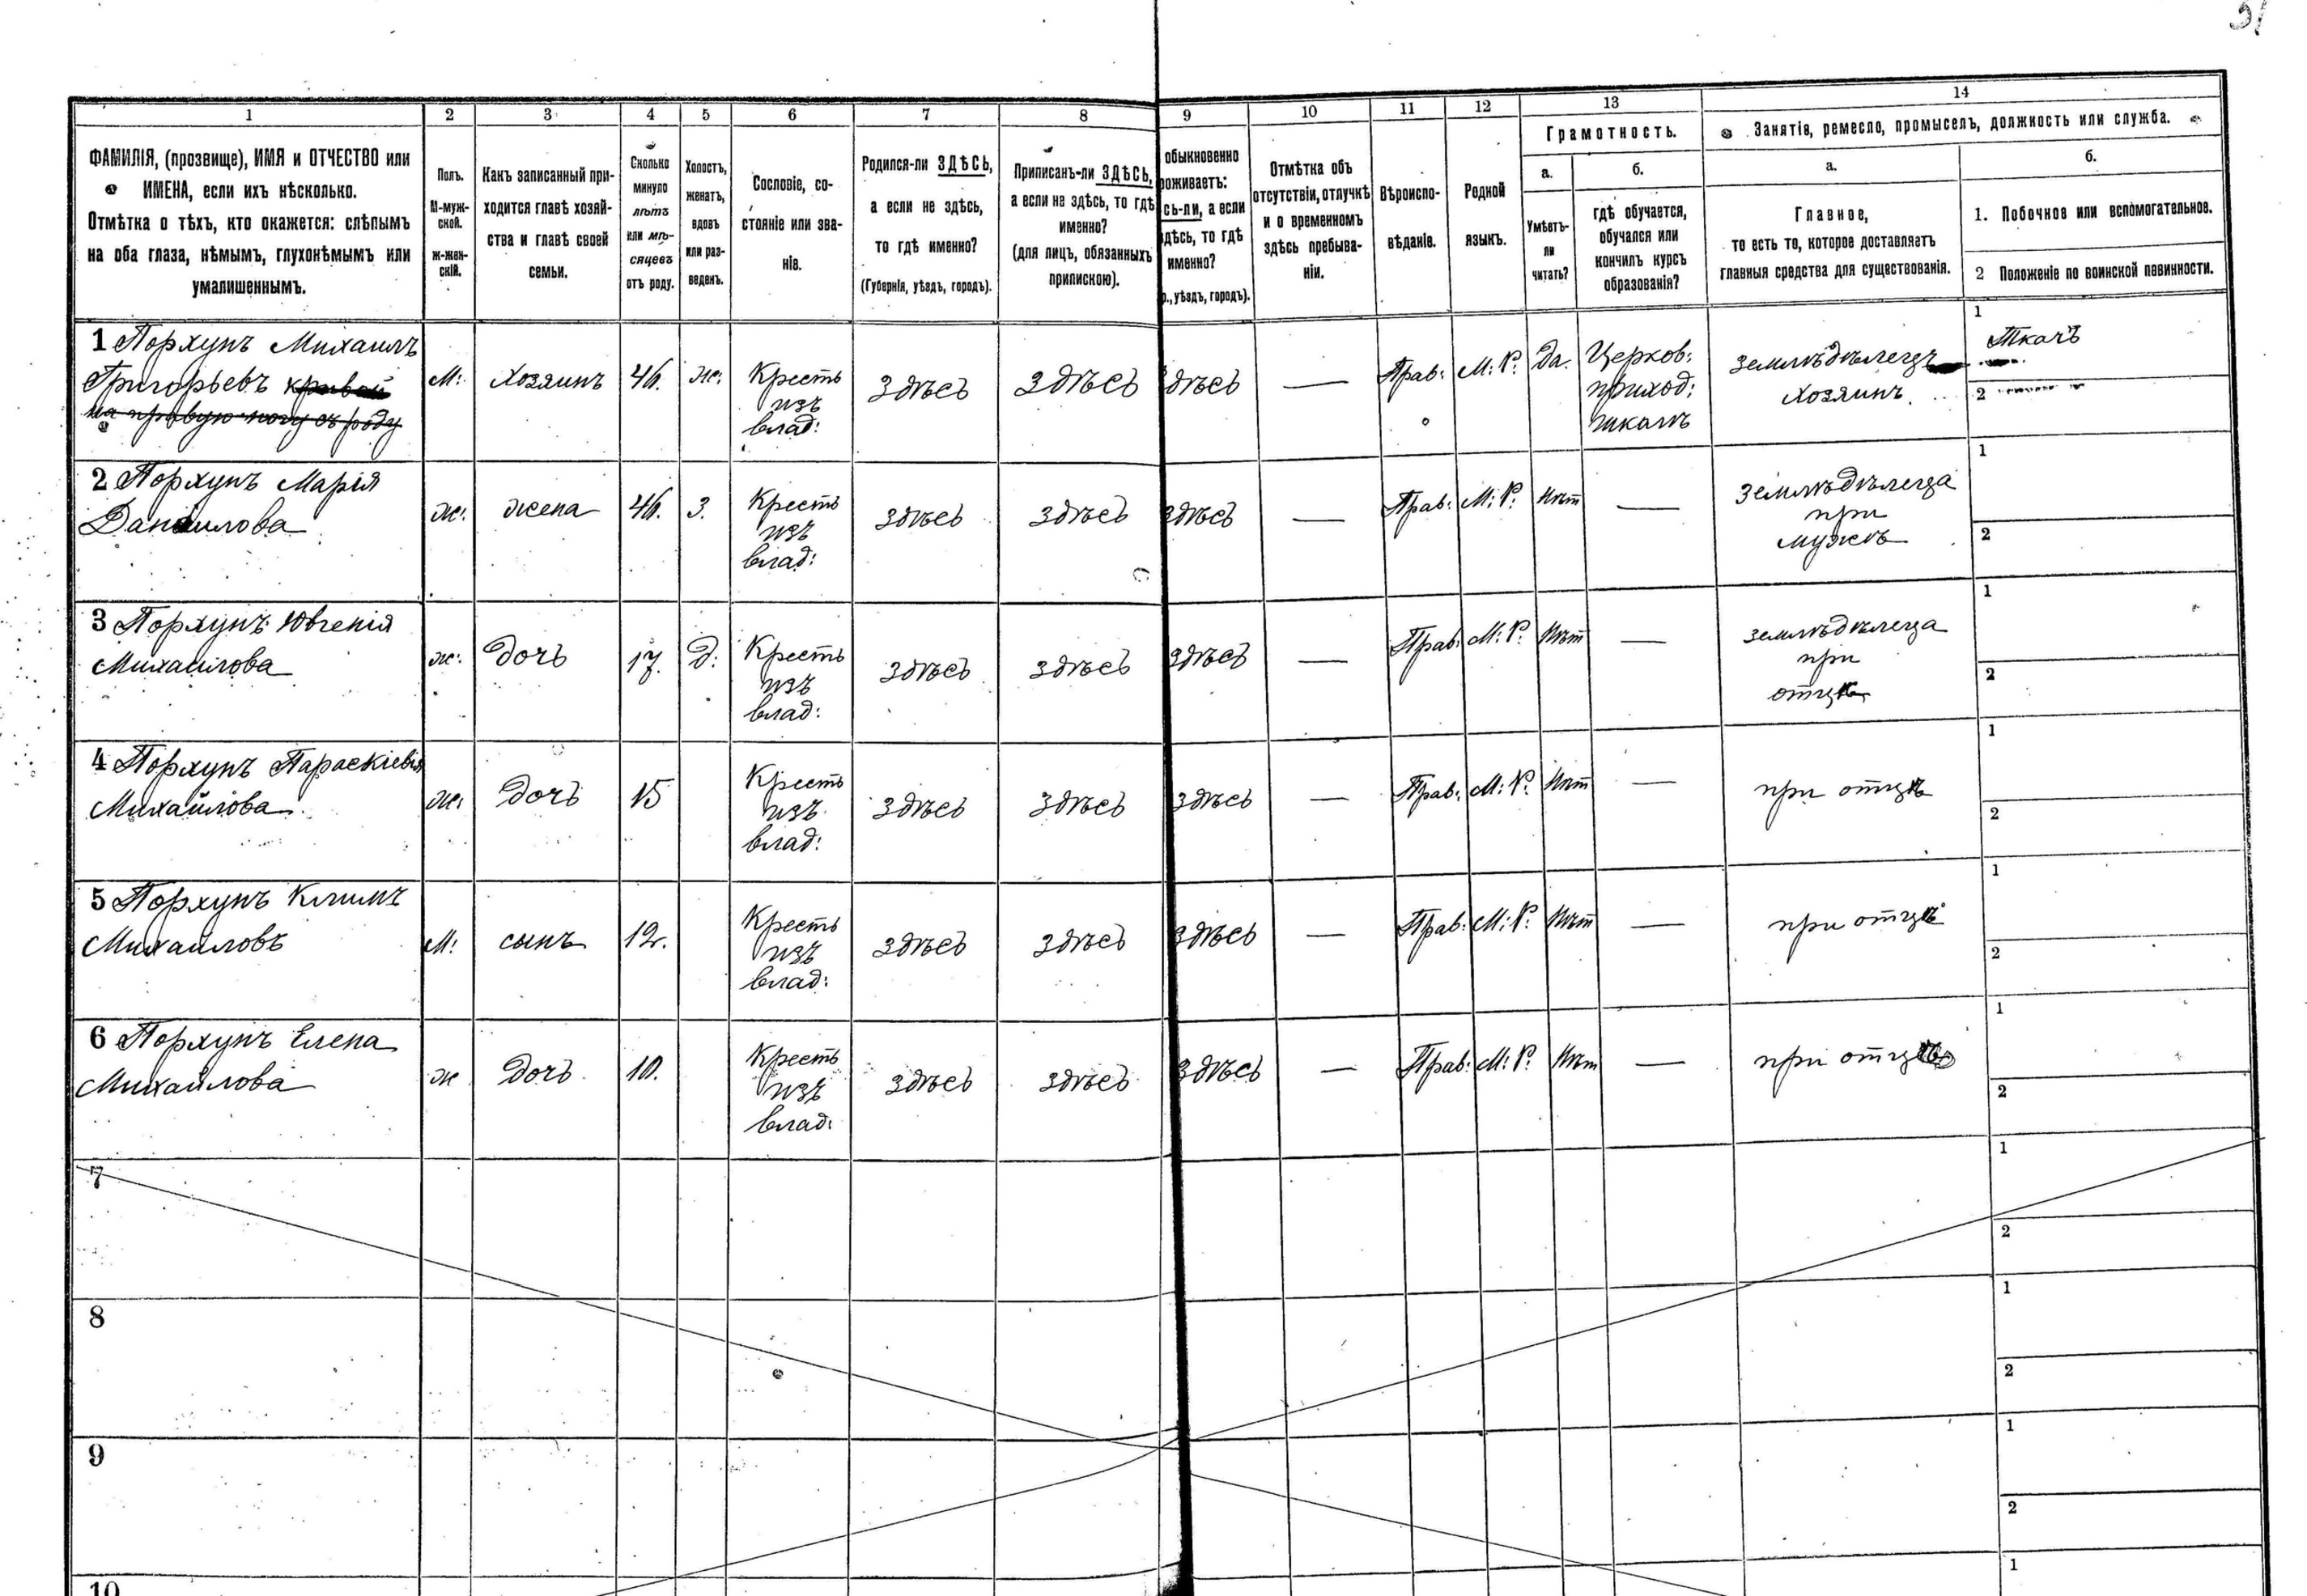 1 2 3 4 5 6 7 8 9 10 11 12 13 14
ФАМИЛІЯ, (прозвище), ИМЯ и ОТЧЕСТВО или
ИМЕНА, если ихъ нѣсколько.
Отмѣтка о тѣхъ, кто окажется: слѣпымъ
на оба глаза, нѣмымъ, глухонѣмымъ или
умалишеннымъ.
Полъ.
М-муж-
ской.
ж-жен-
скій.
Какъ записанный при-
ходится главѣ хозяй-
ства и главѣ своей
семьи.
Сколько
минуло
лѣтъ
или мѣ-
сяцевъ
отъ роду.
Холостъ,
женатъ,
вдовъ
или раз-
веденъ.
Сословіе, со-
стояніе или зва-
ніе.
Родился-ли ЗДѢСЬ,
а если не здѣсь,
то гдѣ именно?
(Губернія, уѣздъ, городъ).
Приписанъ-ли ЗДѢСЬ,
а если не здѣсь, то гдѣ
именно?
(для лицъ, обязанныхъ
припискою).
обыкновенно
роживаетъ:
сь-ли, а если
здѣсь, то гдѣ
именно?
р., уѣздъ, городъ).
Отмѣтка объ
отсутствіи, отлучкѣ
и о временномъ
здѣсь пребыва-
ніи.
Вѣроиспо-
вѣданіе.
Родной
языкъ.
Грамотность.
а.
Умѣетъ-
ли
читать?
б.
гдѣ обучается,
обучался или
кончилъ курсъ
образованія?
Занятіе, ремесло, промыселъ, должность или служба.
а.
Главное,
то есть то, которое доставляетъ
главныя средства для существованія.
б.
1. Побочное или вспомогательное.
2 Положеніе по воинской повинности.
1 Порхунъ Михаилъ
Григорьевъ кривой
на правую ногу съ роду
М: Хозяинъ 46. ж:
Кресть
изъ
влад:
здѣсь здѣсь здѣсь — Прав: М: Р. Да.
Церков:
приход:
школѣ
земледѣлецъ
хозяинъ
1
Ткачъ
2
2 Порхунъ Марія
Даниилова
ж: жена 46. З.
Кресть
изъ
влад:
здѣсь здѣсь здѣсь — Прав: М: Р. Нѣт —
земледѣлеца
при
мужѣ
1
2
3 Порхунъ Ювгенія
Михайлова
ж: дочь 17. Д:
Кресть
изъ
влад:
здѣсь здѣсь здѣсь — Прав: М: Р. Нѣт —
земледѣлеца
при
отцѣ
1
2
4 Порхунъ Параскіевія
Михайлова
ж: дочь 15
Кресть
изъ
влад:
здѣсь здѣсь здѣсь — Прав: М: Р. Нѣт —
при отцѣ
1
2
5 Порхунъ Климъ
Михайловъ
М: сынъ 12.
Кресть
изъ
влад:
здѣсь здѣсь здѣсь — Прав: М: Р. Нѣт —
при отцѣ
1
2
6 Порхунъ Елена
Михайлова
ж дочь 10.
Кресть
изъ
влад:
здѣсь здѣсь здѣсь — Прав: М: Р. Нѣт —
при отцѣ
1
2
7
1
2
8
1
2
9
1
2
10
1